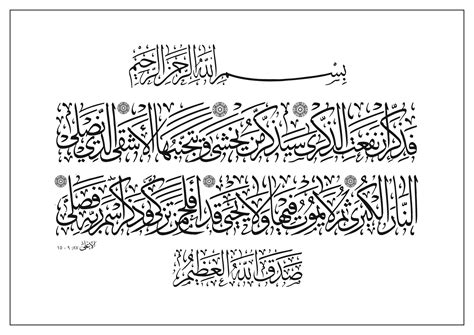 بِسْمِ اللَّهِ الرَّحْمَٰنِ الرَّحِيمِ
فَذَكِّرْ إِن نَّفَعَتِ الذِّكْرَىٰ سَيَذَّكَّرُ مَن يَخْشَىٰ وَيَتَجَنَّبُهَا الْأَشْقَى الَّذِي يَصْلَى
النَّارَ الْكُبْرَىٰ ثُمَّ لَا يَمُوتُ فِيهَا وَلَا يَحْيَىٰ قَدْ أَفْلَحَ مَن تَزَكَّىٰ وَذَكَرَ اسْمَ رَبِّهِ فَصَلَّىٰ
الأعلى ٨٧: ٩ - ١٥
صَدَقَ اللَّهُ الْعَظِيمُ